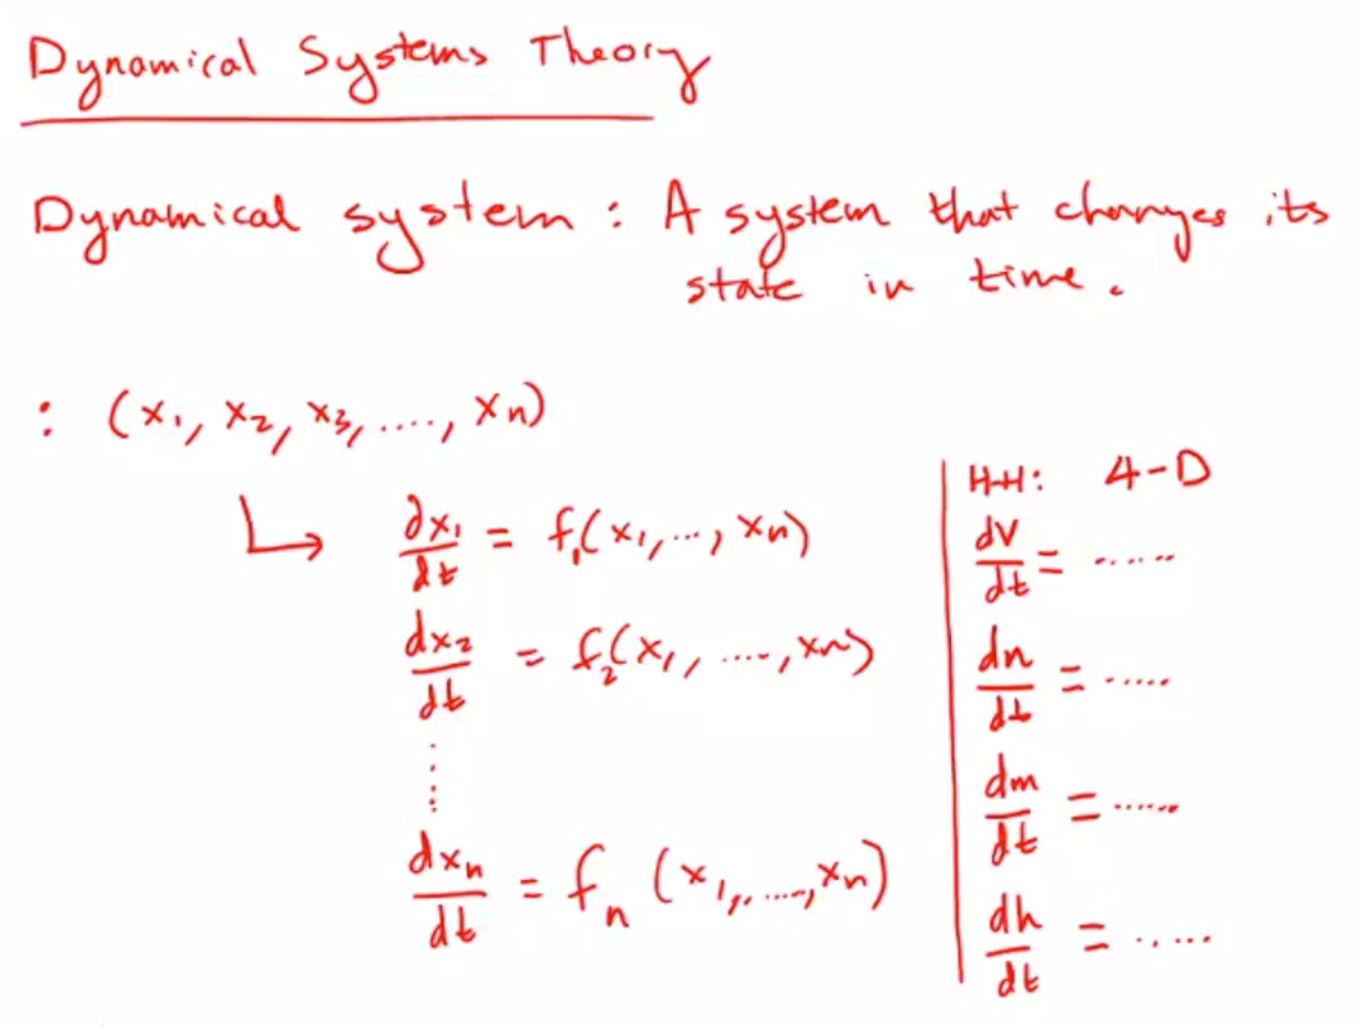 Dynamical Systems Theory
Dynamical system : A system that changes its
state in time.
: (x₁, x₂, x₃, ...., xₙ)
dx₁/dt = f₁(x₁, ..., xₙ)
dx₂/dt = f₂(x₁, ...., xₙ)
⋮
dxₙ/dt = fₙ (x₁, ...., xₙ)
H-H: 4-D
dV/dt = ......
dn/dt = .....
dm/dt = ......
dh/dt = .....